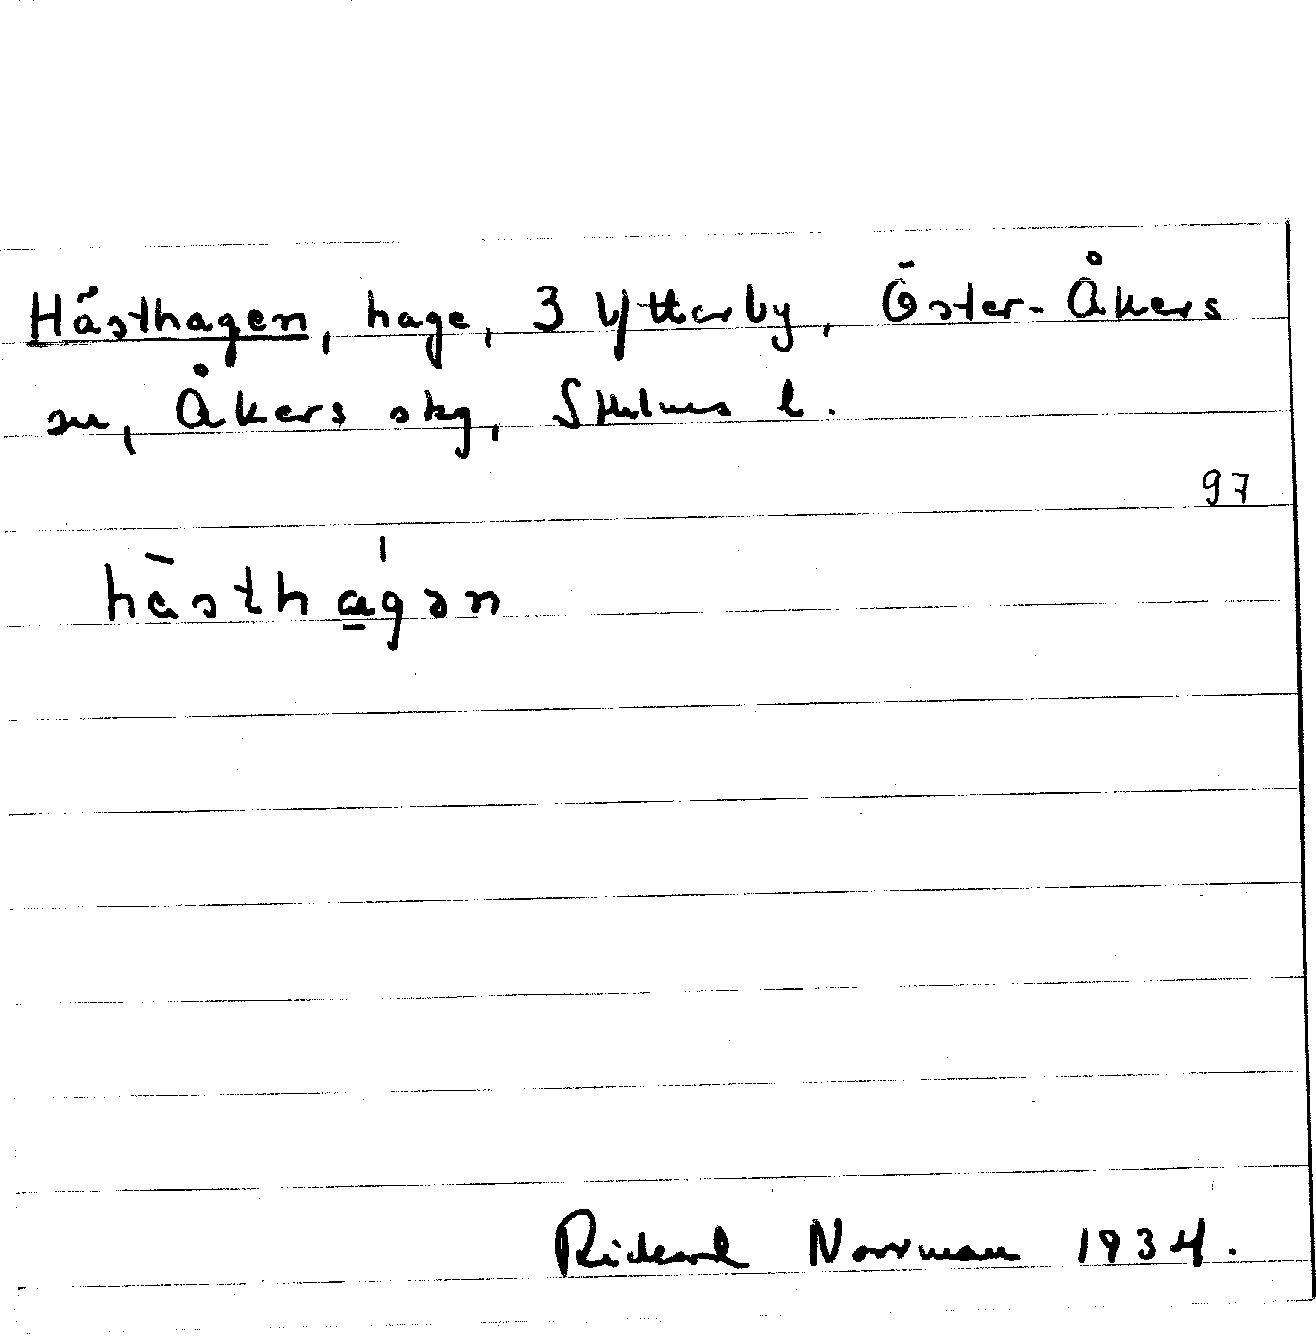 Hästhagen, hage, 3 Ytterby, Öster-Åkers
sn, Åkers skg, Sthlms l.
97
hästhagən
Rickard Norrman 1934.